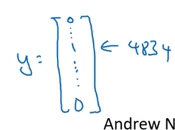 0
1
y = ← 4834
0
Andrew N